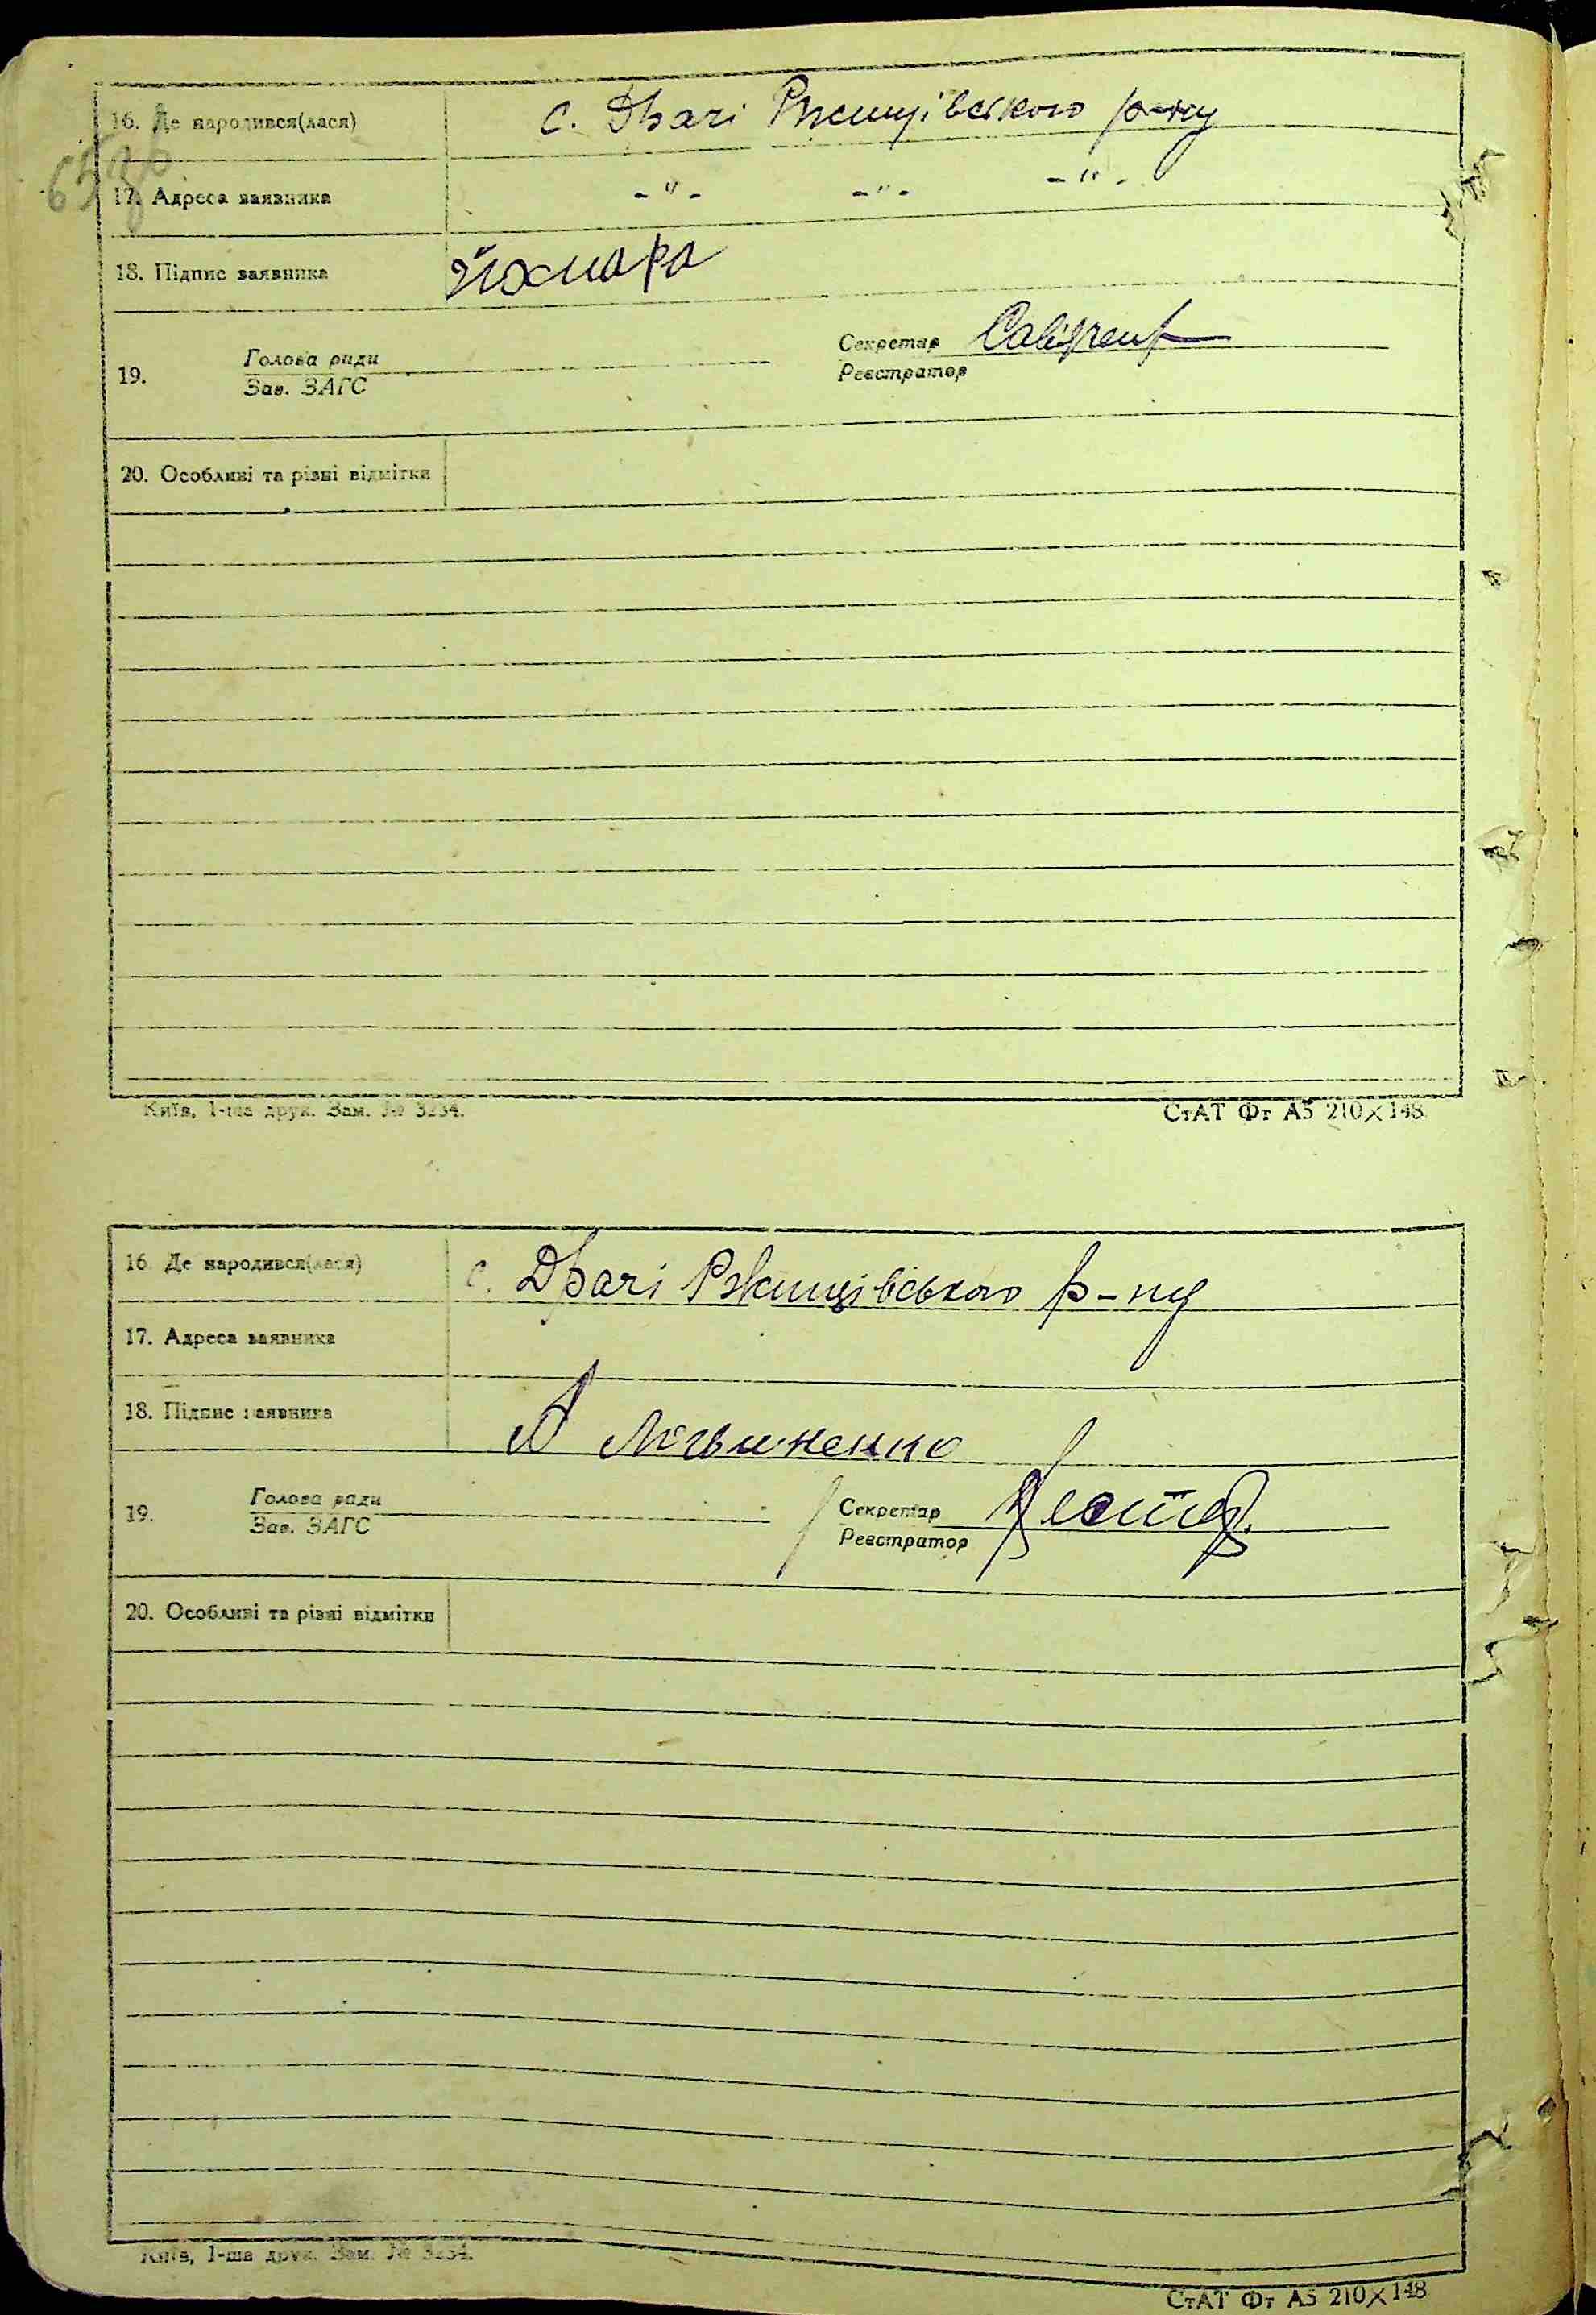 65 зв
16. Де народився(лася) с. Драчі Ржищівського р-ну
17. Адреса заявника -"- -"- -"-
18. Підпис заявника
Секретар
Голова ради
19.
Реєстратор
Зав. ЗАГС
20. Особливі та різні відмітки
Київ, 1-ша друк. Зам. № 3234. СтАТ Фт А5 210×148
16. Де народився(лася) с. Драчі Ржищівського р-ну
17. Адреса заявника
18. Підпис заявника А Логвиненко
Голова ради Секретар
19.
Зав. ЗАГС Реєстратор
20. Особливі та різні відмітки
Київ, 1-ша друк. Зам. № 3234. СтАТ Фт А5 210×148